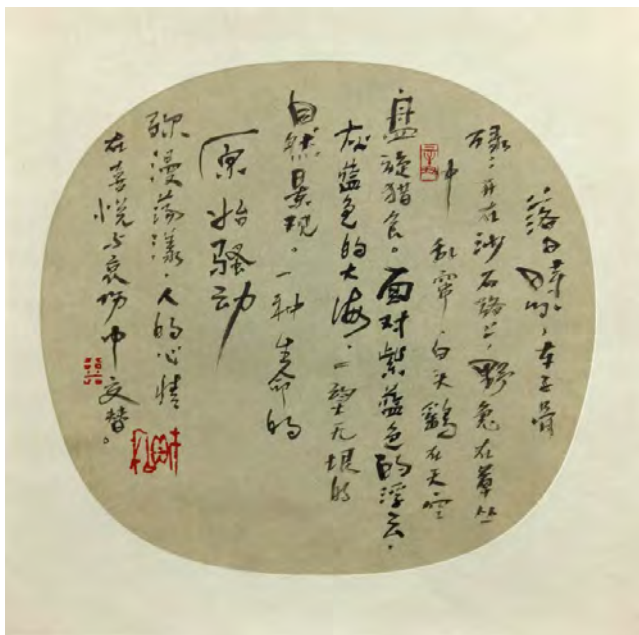 落日时分，车子骨
碌碌开在沙石路上，野兔在草丛
中乱窜，白头鹞在天空
盘旋猎食。面对紫蓝色的浮云，
灰蓝色的大海，一望无垠的
自然景观，一种生命的
原始骚动
弥漫荡漾，人的心情
在喜悦与哀伤中交替。